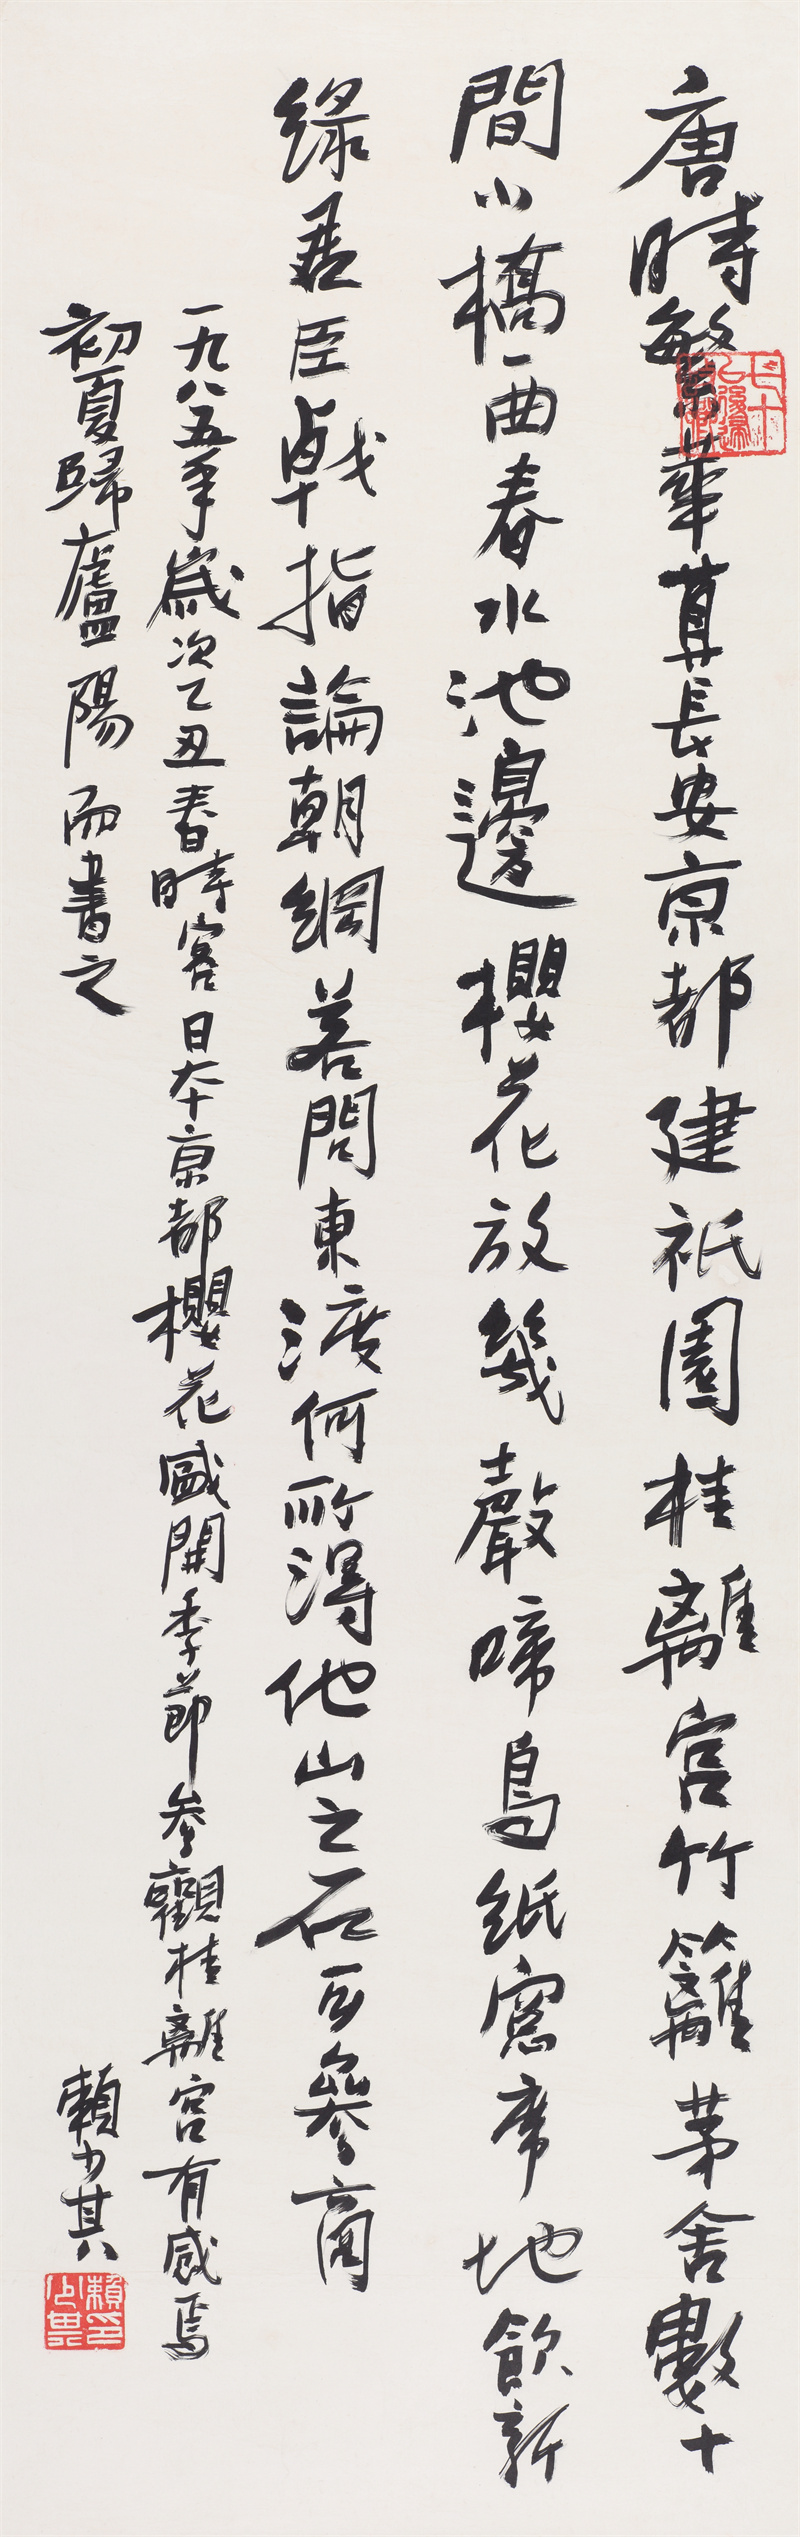 唐時繁華算長安京都建祇園桂離宮竹籬茅舍數十
間小橋一曲春水池邊櫻花放幾聲啼鳥紙窗席地飲新
綠君臣戟指論朝綱若問東渡何所得他山之石可參商
一九八五年歲次乙丑春時客日本京都櫻花盛開季節參觀桂離宮有感焉
初夏歸廬陽而書之
賴少其